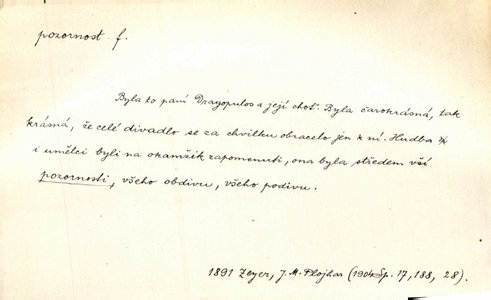 pozornost f.
Byla to paní Dragopulos a její choť. Byla čarokrásná, tak
krásná, že celé divadlo se za chvilku obracelo jen k ní. Hudba
i umělci byli na okamžik zapomenuti, ona byla středem vší
pozornosti, všeho obdivu, všeho podivu.
1891 Zeyer, J. M. Plojhar (1904 Sp. 17, 188, 28).